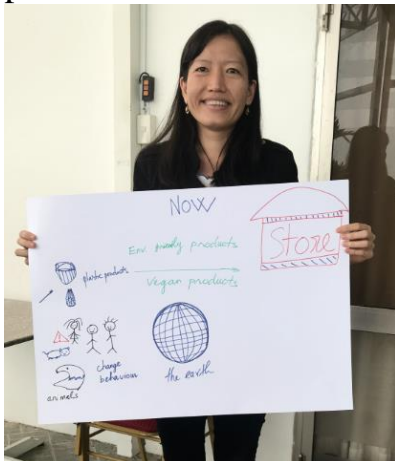 NOW
Store
Env. friendly products
plastic products
Vegan products
change
behaviour
the earth
animals